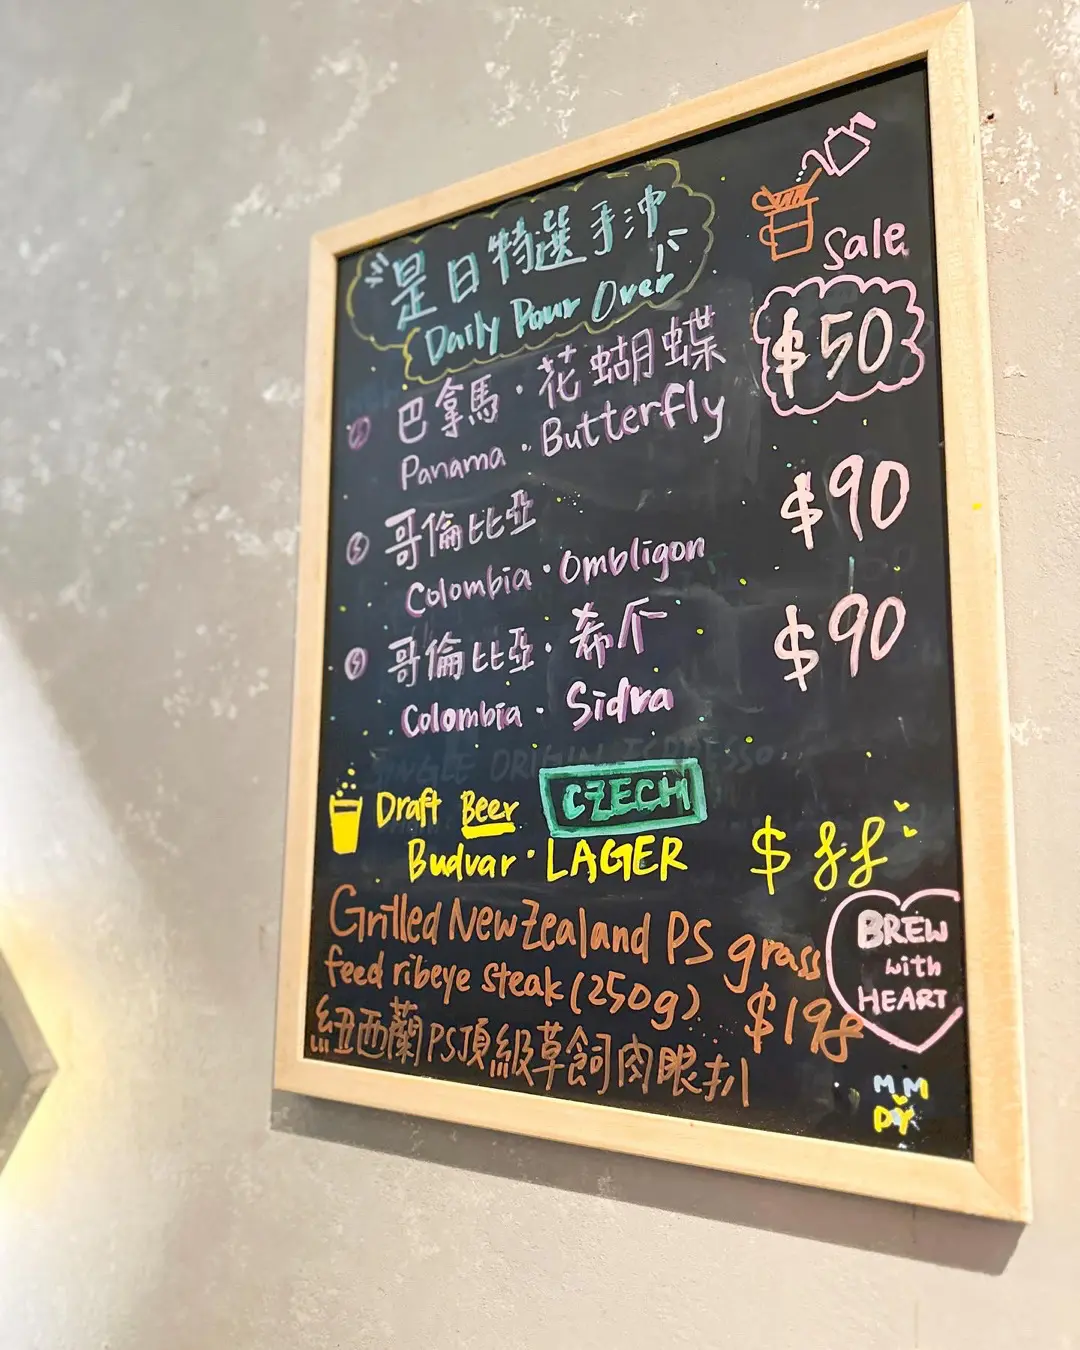 是日特選手沖
Daily Pour Over
Sale
巴拿馬・花蝴蝶
$50
Panama・Butterfly
哥倫比亞
$90
Colombia・Ombligon
哥倫比亞・希介
$90
Colombia・Sidra
SINGLE ORIGIN ESPRESSO
Draft Beer CZECH
Budvar・LAGER
Grilled New Zealand PS grass
feed ribeye steak (250g)
$198
紐西蘭PS頂級草飼肉眼扒
BREW
with
HEART